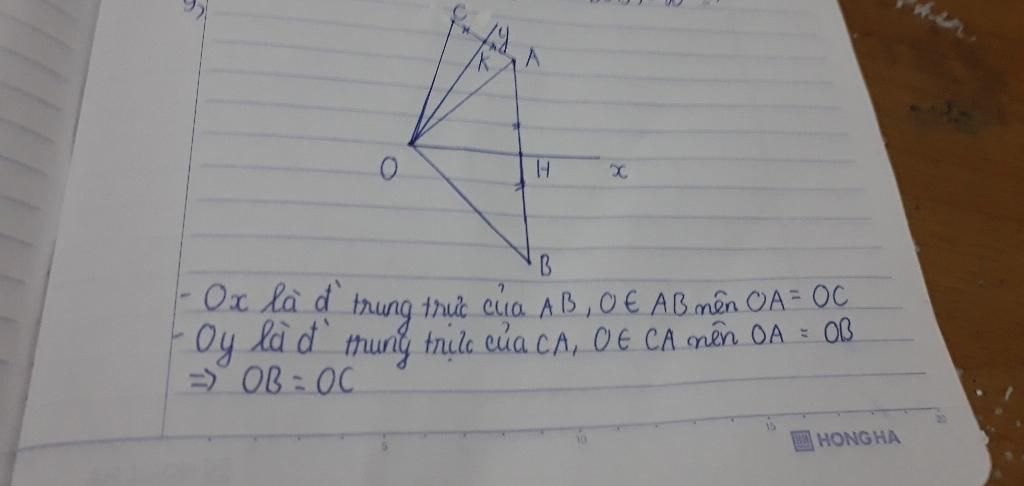 9)
C
y
K
A
O
H
x
B
- Ox là đ` trung trực của AB, O ∈ AB nên OA = OC
- Oy là đ` trung trực của CA, O ∈ CA nên OA = OB
=> OB = OC
5
10
15
20
HONG HA